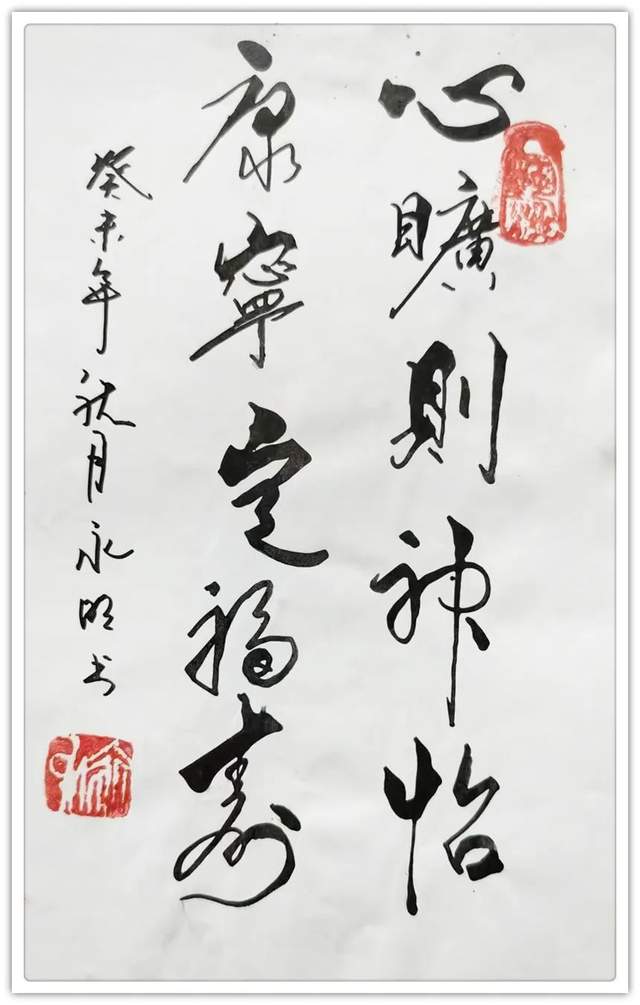 心矌則神怡
康寧定福壽
癸未年秋月永明书